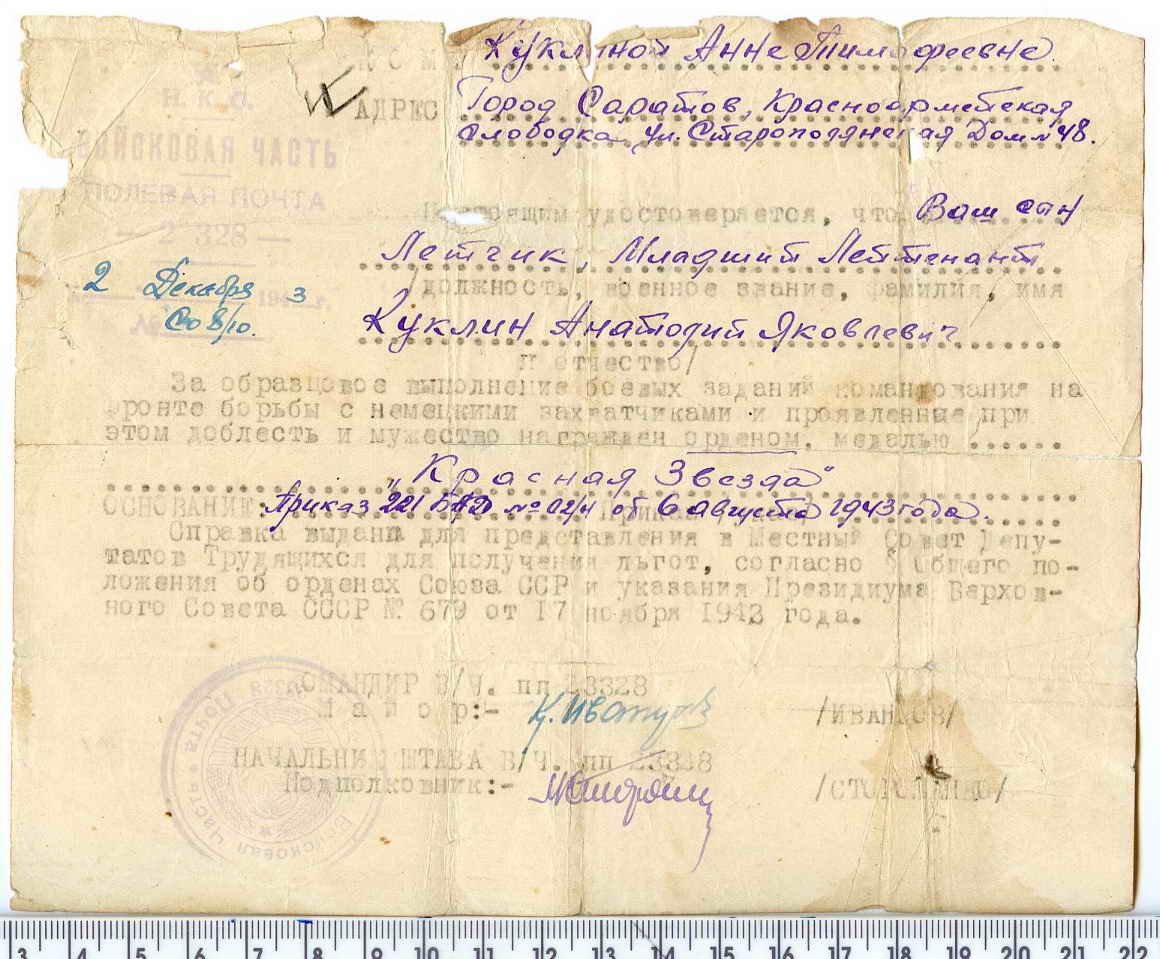 КОМУ Куклиной Анне Тимофеевне.
АДРЕС Город Саратов, Красноармейская
слободка ул. Старополянская Дом № 48.
Н.К.О.
ВОЙСКОВАЯ ЧАСТЬ
ПОЛЕВАЯ ПОЧТА
Настоящим удостоверяется, что Ваш сын
Летчик, Младший Лейтенант
/должность, военное звание, фамилия, имя
2 Декабря 1943 г.
№
Куклин Анатолий Яковлевич
и отчество/
За образцовое выполнение боевых заданий командования на
фронте борьбы с немецкими захватчиками и проявленные при
этом доблесть и мужество награжден орденом, медалью
"Красная Звезда"
ОСНОВАНИЕ: Приказ 221 БАД № 02/н от 6 августа 1943 года.
Справка выдана для представления в Местный Совет Депу-
татов Трудящихся для получения льгот, согласно Общего по-
ложения об орденах Союза ССР и указания Президиума Верхов-
ного Совета СССР № 679 от 17 ноября 1943 года.
КОМАНДИР В/Ч. пп 23328
Майор:- /ИВАНЦОВ/
НАЧАЛЬНИК ШТАБА В/Ч. пп 23328
Подполковник:-
Войсковая Часть Полевая Почта
3 4 5 6 7 8 9 10 11 12 13 14 15 16 17 18 19 20 21 22